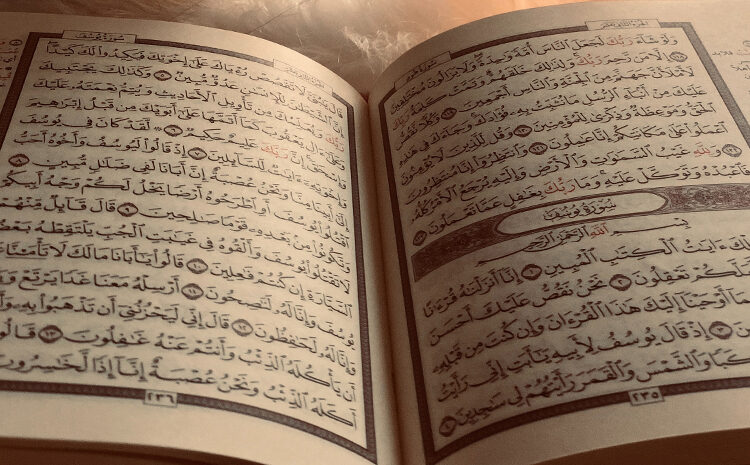 الجزء الثاني عشر
سورة هود
وَلَوْ شَآءَ رَبُّكَ لَجَعَلَ ٱلنَّاسَ أُمَّةً وَٰحِدَةً وَلَا يَزَالُونَ مُخْتَلِفِينَ
١١٨ إِلَّا مَن رَّحِمَ رَبُّكَ وَلِذَٰلِكَ خَلَقَهُمْ وَتَمَّتْ كَلِمَةُ رَبِّكَ
لَأَمْلَأَنَّ جَهَنَّمَ مِنَ ٱلْجِنَّةِ وَٱلنَّاسِ أَجْمَعِينَ ١١٩ وَكُلًّا نَّقُصُّ
عَلَيْكَ مِنْ أَنۢبَآءِ ٱلرُّسُلِ مَا نُثَبِّتُ بِهِۦ فُؤَادَكَ وَجَآءَكَ فِى هَٰذِهِ
ٱلْحَقُّ وَمَوْعِظَةٌ وَذِكْرَىٰ لِلْمُؤْمِنِينَ ١٢٠ وَقُل لِّلَّذِينَ لَا يُؤْمِنُونَ
ٱعْمَلُوا۟ عَلَىٰ مَكَانَتِكُمْ إِنَّا عَٰمِلُونَ ١٢١ وَٱنتَظِرُوٓا۟ إِنَّا مُنتَظِرُونَ
١٢٢ وَلِلَّهِ غَيْبُ ٱلسَّمَٰوَٰتِ وَٱلْأَرْضِ وَإِلَيْهِ يُرْجَعُ ٱلْأَمْرُ كُلُّهُۥ
فَٱعْبُدْهُ وَتَوَكَّلْ عَلَيْهِ وَمَا رَبُّكَ بِغَٰفِلٍ عَمَّا تَعْمَلُونَ ١٢٣
سُورَةُ يُوسُفَ
بِسْمِ ٱللَّهِ ٱلرَّحْمَٰنِ ٱلرَّحِيمِ
ءَايَٰتُ ٱلْكِتَٰبِ ٱلْمُبِينِ ١ إِنَّآ أَنزَلْنَٰهُ قُرْءَٰنًا
تَعْقِلُونَ ٢ نَحْنُ نَقُصُّ عَلَيْكَ أَحْسَنَ
أَوْحَيْنَآ إِلَيْكَ هَٰذَا ٱلْقُرْءَانَ وَإِن كُنتَ مِن قَبْلِهِۦ
٣ إِذْ قَالَ يُوسُفُ لِأَبِيهِ يَٰٓأَبَتِ إِنِّى رَأَيْتُ
وَٱلشَّمْسَ وَٱلْقَمَرَ رَأَيْتُهُمْ لِى سَٰجِدِينَ ٤
٢٣٥
سورة يوسف
قَالَ يَٰبُنَىَّ لَا تَقْصُصْ رُءْيَاكَ عَلَىٰٓ إِخْوَتِكَ فَيَكِيدُوا۟ لَكَ كَيْدًا
إِنَّ ٱلشَّيْطَٰنَ لِلْإِنسَٰنِ عَدُوٌّ مُّبِينٌ ٥ وَكَذَٰلِكَ يَجْتَبِيكَ
رَبُّكَ وَيُعَلِّمُكَ مِن تَأْوِيلِ ٱلْأَحَادِيثِ وَيُتِمُّ نِعْمَتَهُۥ عَلَيْكَ
وَعَلَىٰٓ ءَالِ يَعْقُوبَ كَمَآ أَتَمَّهَا عَلَىٰٓ أَبَوَيْكَ مِن قَبْلُ إِبْرَٰهِيمَ
وَإِسْحَٰقَ إِنَّ رَبَّكَ عَلِيمٌ حَكِيمٌ ٦ ۞ لَّقَدْ كَانَ فِى يُوسُفَ
وَإِخْوَتِهِۦٓ ءَايَٰتٌ لِّلسَّآئِلِينَ ٧ إِذْ قَالُوا۟ لَيُوسُفُ وَأَخُوهُ أَحَبُّ
إِلَىٰٓ أَبِينَا مِنَّا وَنَحْنُ عُصْبَةٌ إِنَّ أَبَانَا لَفِى ضَلَٰلٍ مُّبِينٍ ٨
ٱقْتُلُوا۟ يُوسُفَ أَوِ ٱطْرَحُوهُ أَرْضًا يَخْلُ لَكُمْ وَجْهُ أَبِيكُمْ
وَتَكُونُوا۟ مِنۢ بَعْدِهِۦ قَوْمًا صَٰلِحِينَ ٩ قَالَ قَآئِلٌ مِّنْهُمْ
لَا تَقْتُلُوا۟ يُوسُفَ وَأَلْقُوهُ فِى غَيَٰبَتِ ٱلْجُبِّ يَلْتَقِطْهُ بَعْضُ
ٱلسَّيَّارَةِ إِن كُنتُمْ فَٰعِلِينَ ١٠ قَالُوا۟ يَٰٓأَبَانَا مَا لَكَ لَا تَأْمَ۫نَّا
يُوسُفَ وَإِنَّا لَهُۥ لَنَٰصِحُونَ ١١ أَرْسِلْهُ مَعَنَا غَدًا يَرْتَعْ
وَإِنَّا لَهُۥ لَحَٰفِظُونَ ١٢ قَالَ إِنِّى لَيَحْزُنُنِىٓ أَن تَذْهَبُوا۟ بِهِۦ
أَن يَأْكُلَهُ ٱلذِّئْبُ وَأَنتُمْ عَنْهُ غَٰفِلُونَ ١٣ قَالُوا۟
أَكَلَهُ ٱلذِّئْبُ وَنَحْنُ عُصْبَةٌ إِنَّآ إِذًا لَّخَٰسِرُونَ
٢٣٦